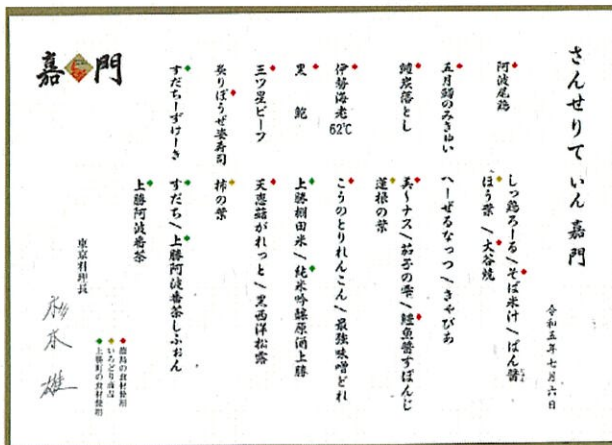 さんせりて いん 嘉門
令和五年七月六日
阿波尾鶏
しっ鶏ろーる/そば米汁/ぱん醤
ほう葉/大谷焼
五月鱚のみきゅい
へーぜるなっつ/きゃびあ
鱧炭落とし
美〜ナス/茄子の雫/鰹魚醤すぽんじ
蓮根の葉
伊勢海老 62℃
こうのとりれんこん/最強味噌どれ
黒 鮑
上勝棚田米/純米吟醸原酒上勝
三ツ星ビーフ
天恵菇がれっと/黒西洋松露
炙りぼうぜ姿寿司
柿の葉
すだちーずけーき
すだち/上勝阿波番茶しふぉん
上勝阿波番茶
嘉門
東京料理長
◆徳島の食材使用
◆いろどり商品
◆上勝町の食材使用